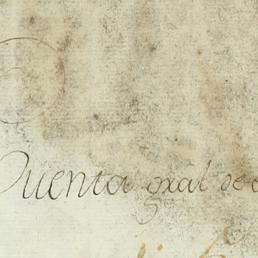 Quenta gral de